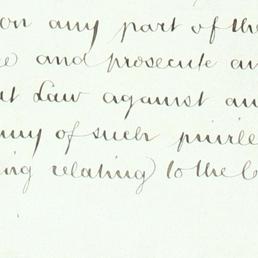 on any part of the
and prosecute an
at Law against an
any of such privile
ing relating to the C